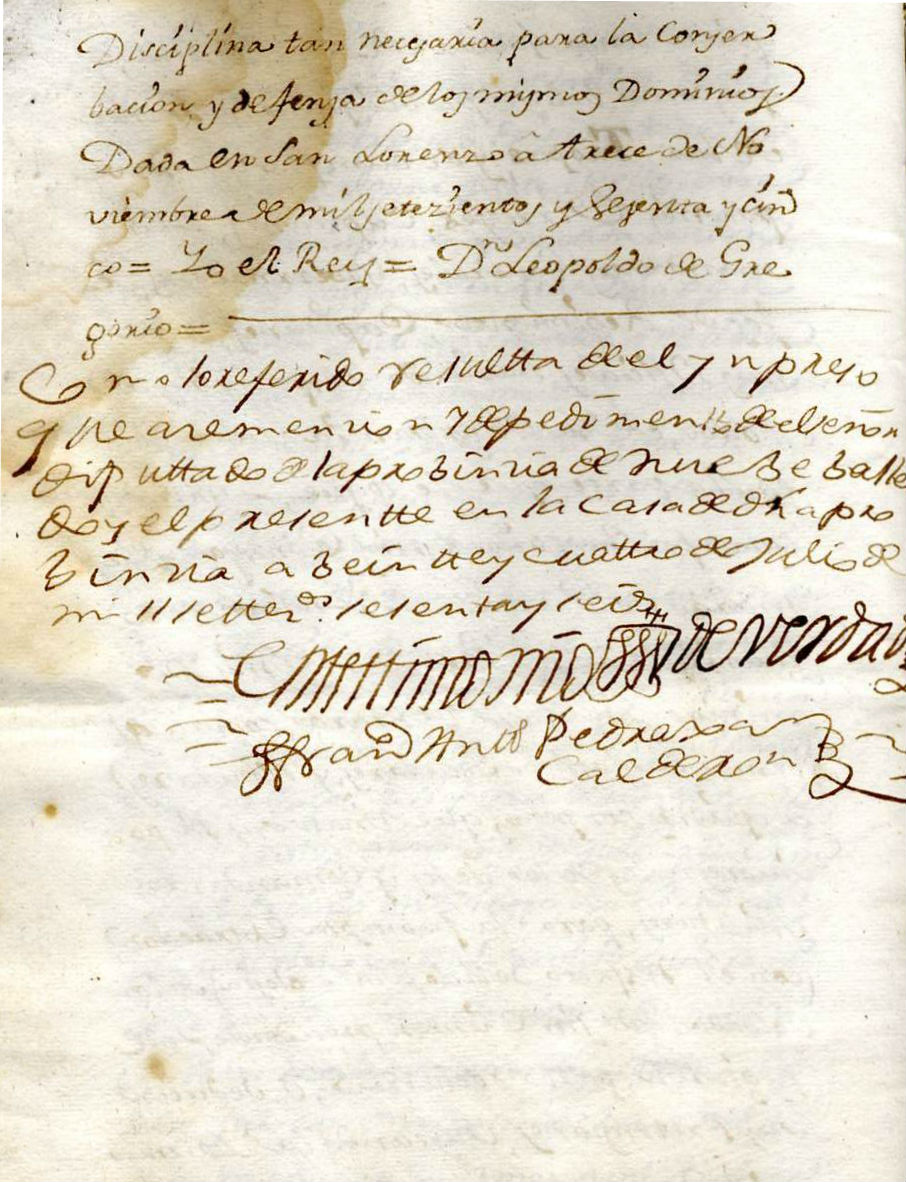 Disciplina tan necesaria para la Conser
bacion y defensa de los mismos Dominios
Dada en San Lorenzo â trece de No
viembre de mil setezientos y Sesenta y cin
co = Yo el Rey = Dn Leopoldo de Gre
gorio =
Como lo referido resultta de el ynpreso
que aremension y depedimento de el señor
diputtado de la probinzia de nuebe balles
doy el presentte en la Casa de dha pro
binzia a beintte y cuattro de Julio de
mill setters. sesenta y seis
En testtimonio de verdad
ffranco Antto Pedraxa
Calderon